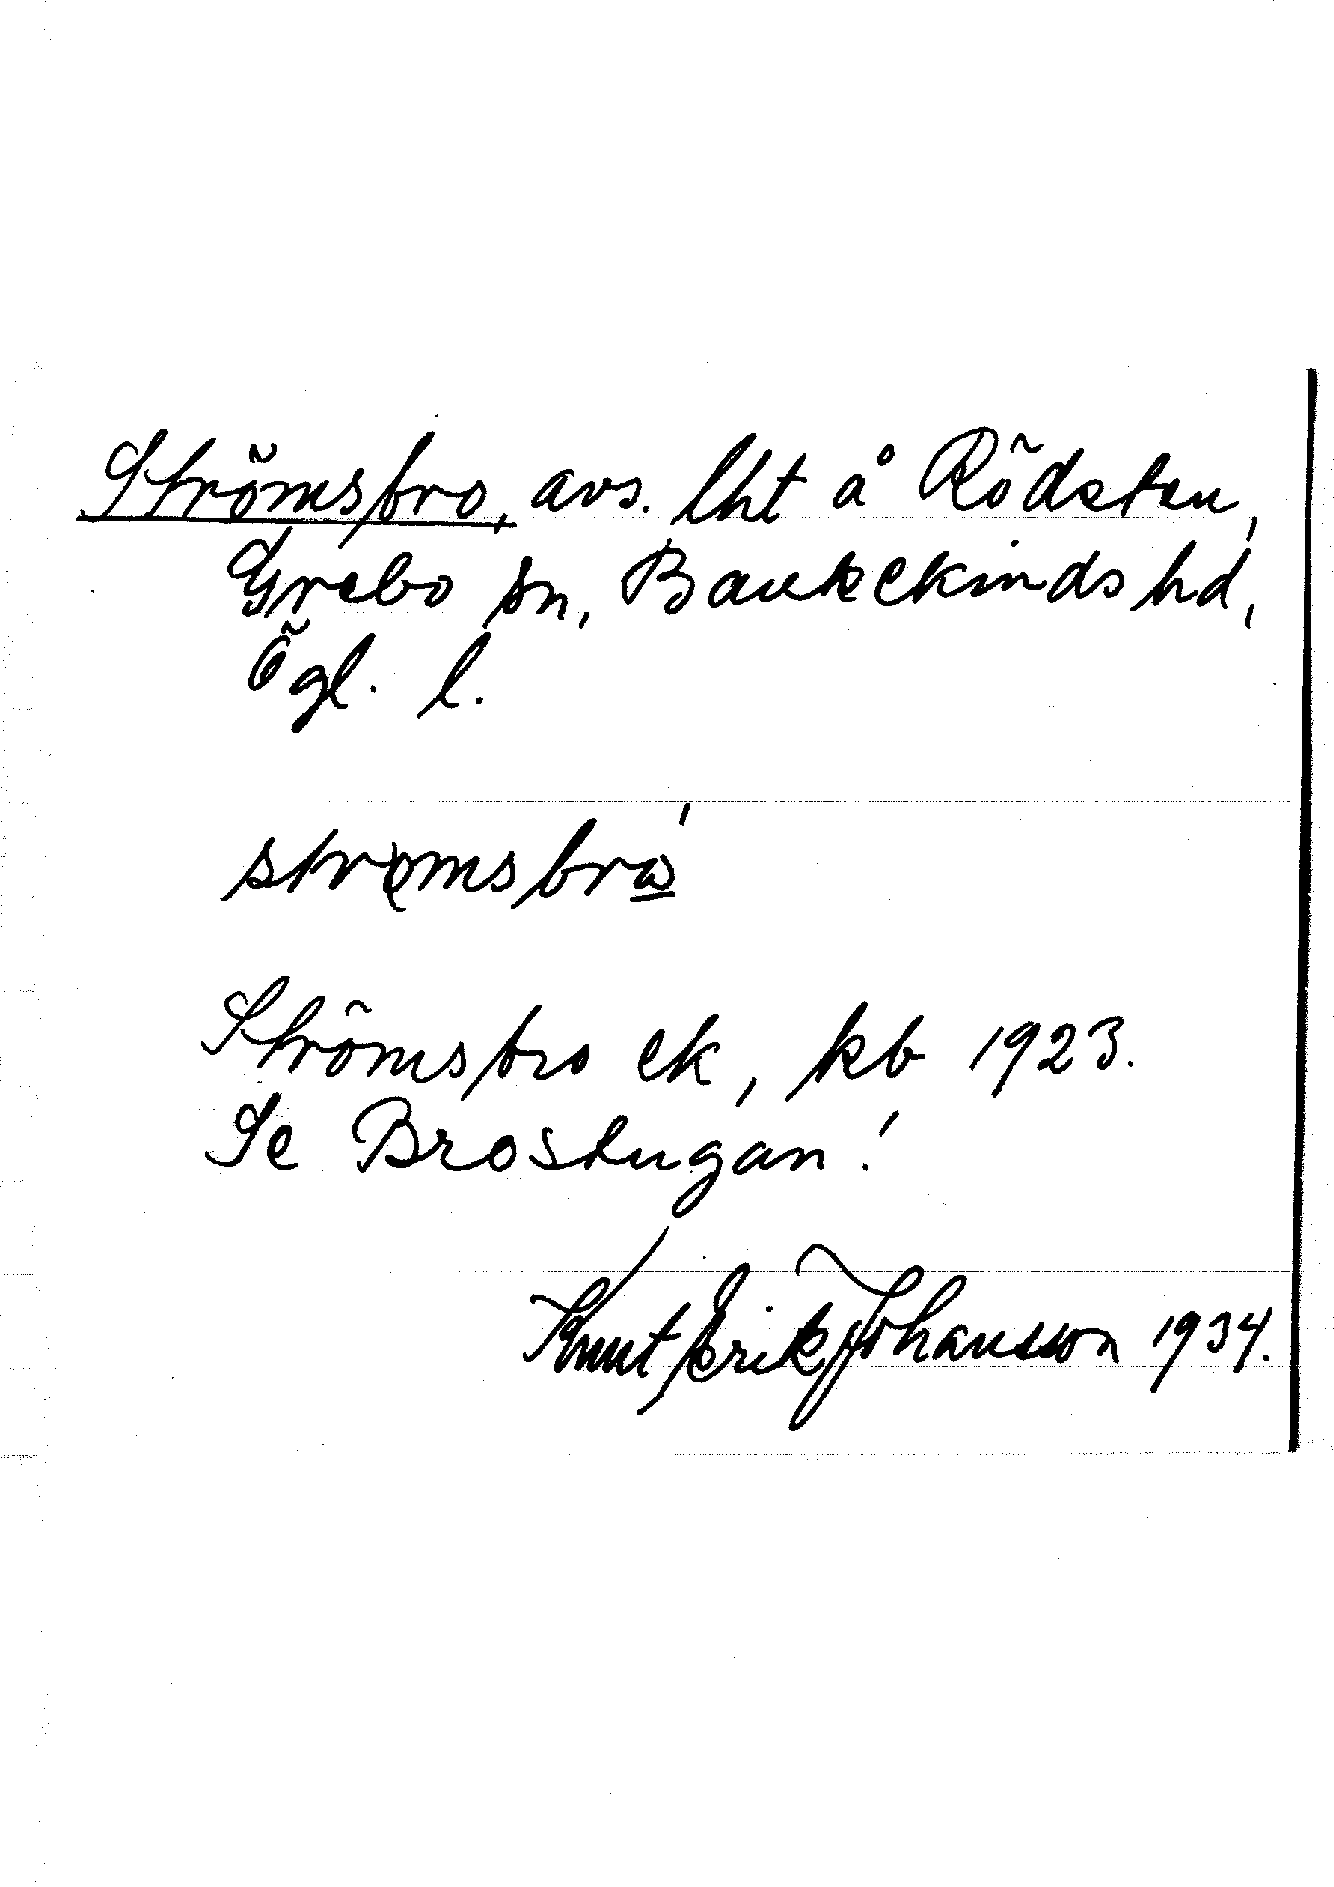 Strömsbro, avs. lht å Rödsten,
Grebo sn, Bankekinds hd,
Ögl. l.
Strömsbro ek, kb 1923.
Se Brostugan!
Knut Erik Johansson 1934.